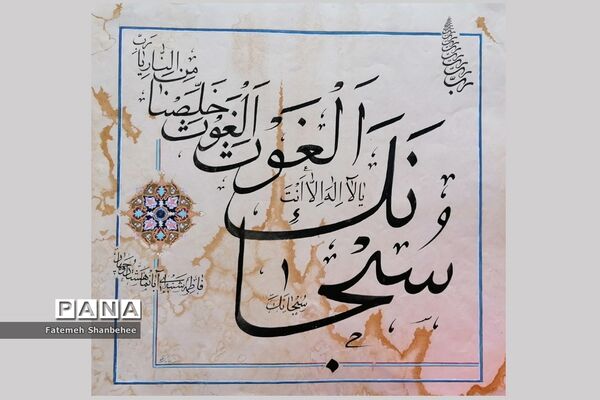 سُبْحانَکَ
یا لا اِلٰهَ اِلّا اَنْتَ
اَلْغَوْثَ
اَلْغَوْثَ
خَلِّصْنا
مِنَ النّارِ یا رَبِّ
سُبْحانَکَ
PANA
Fatemeh Shanbehee